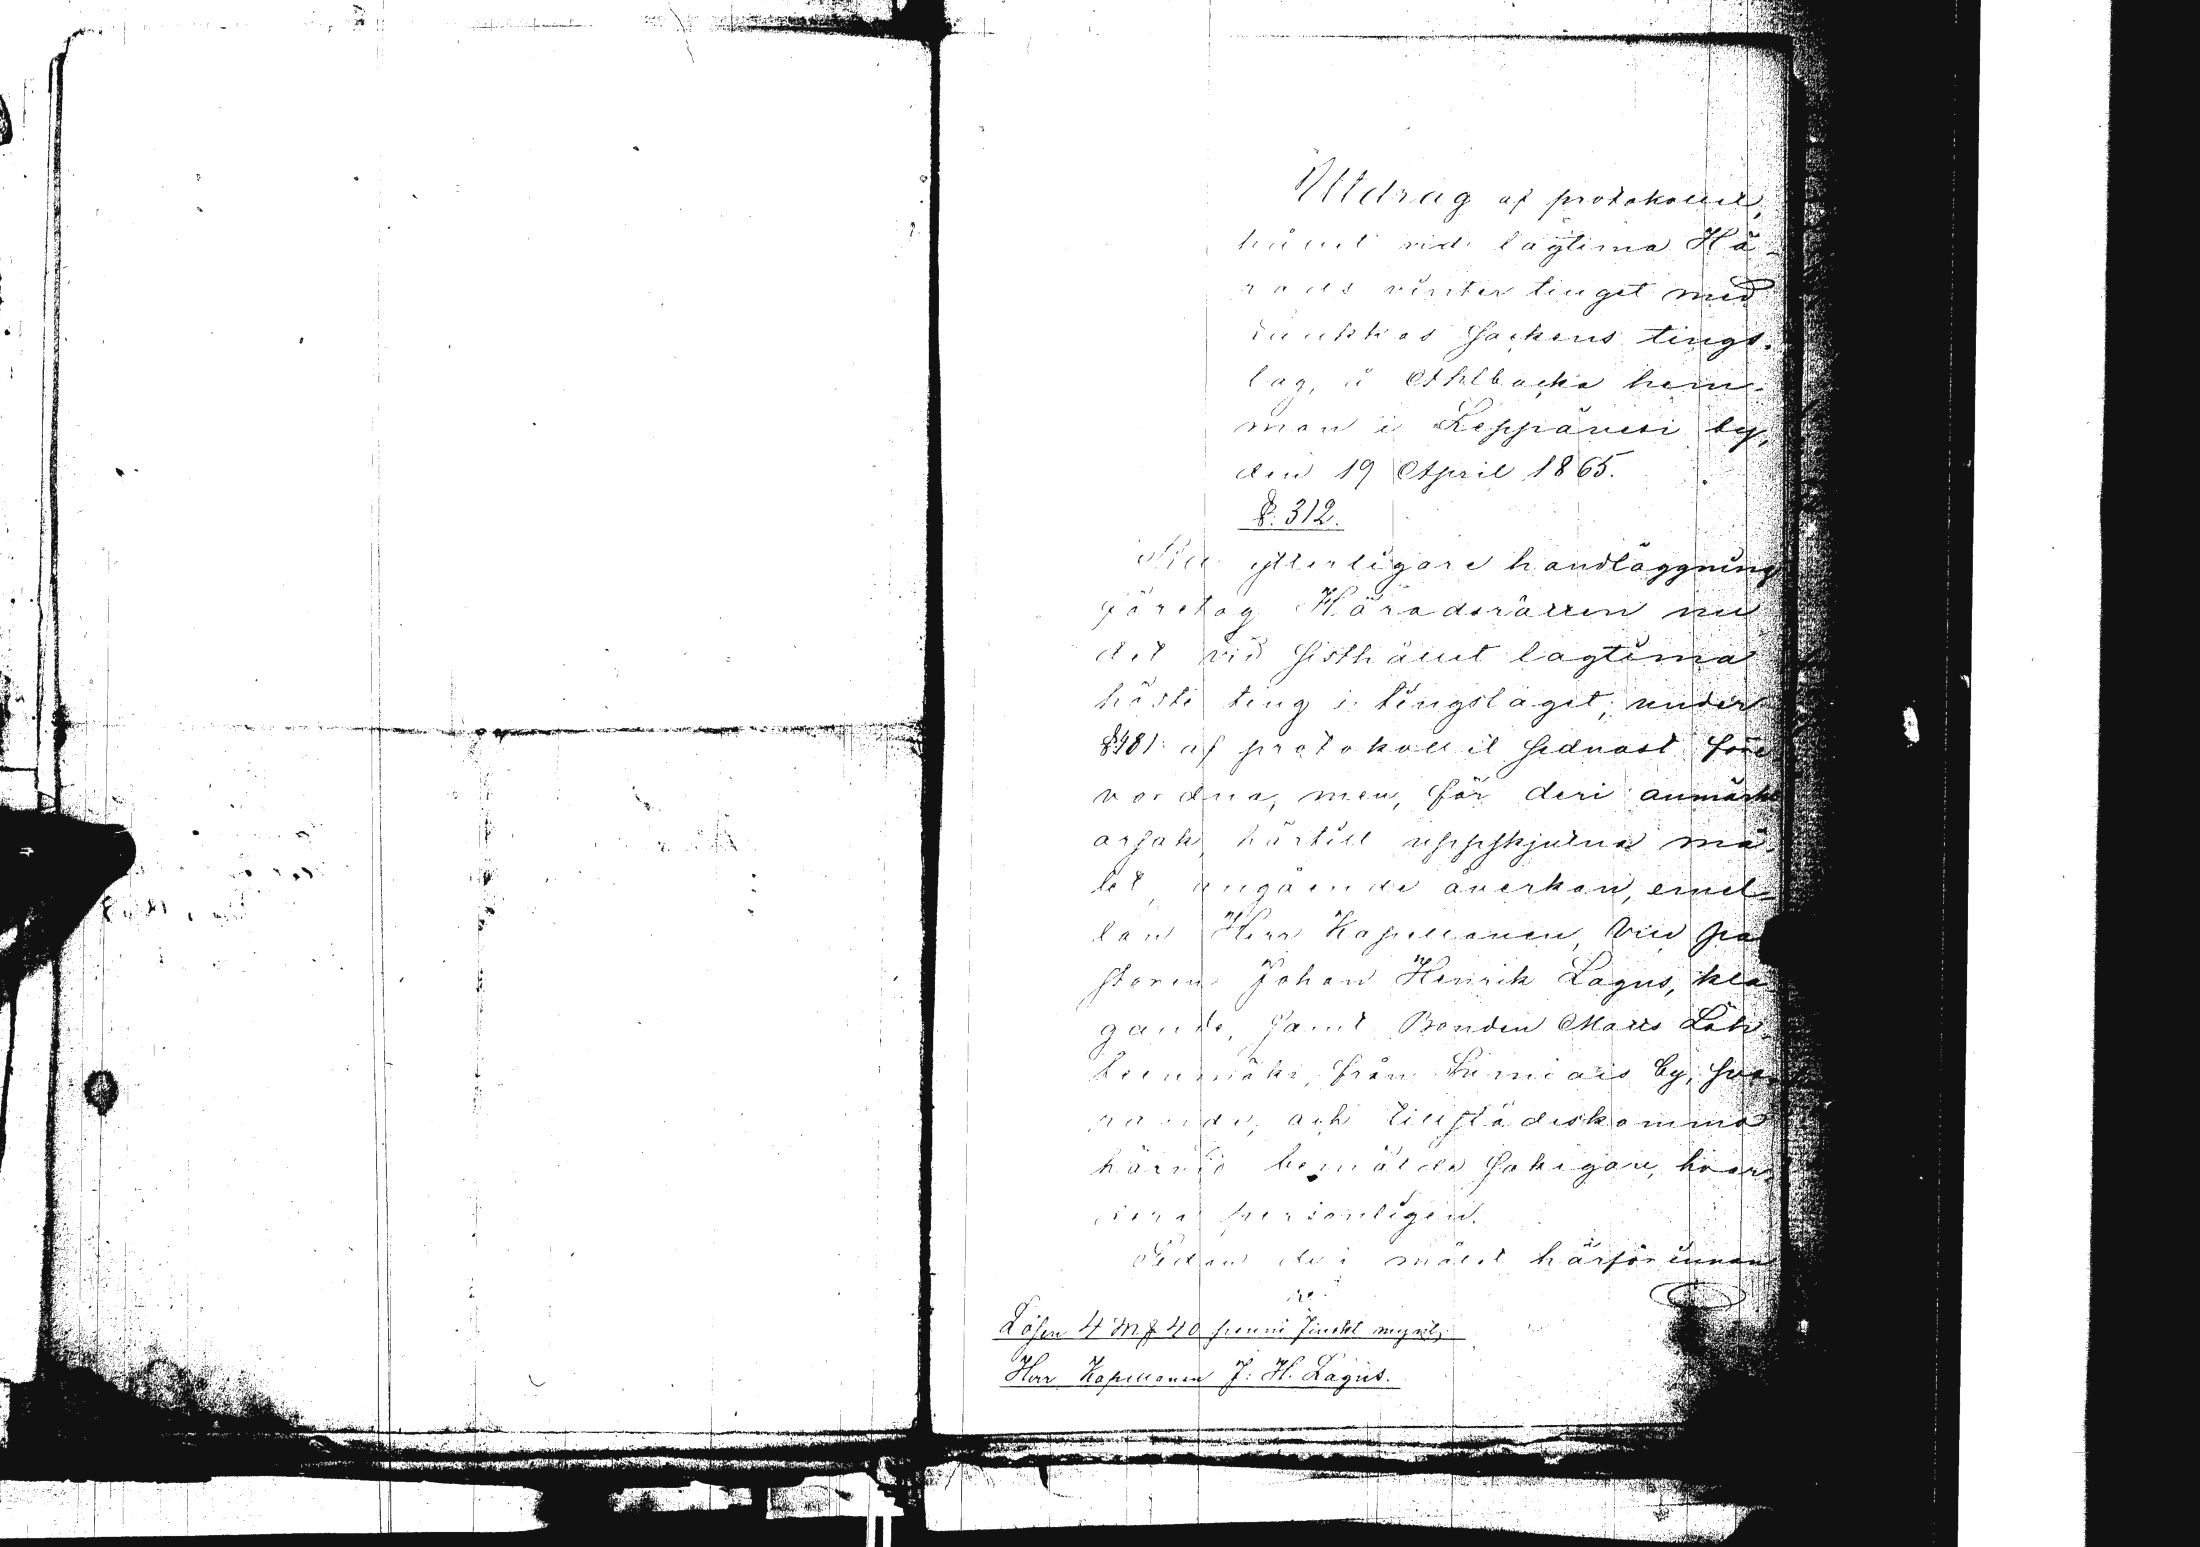 Utdrag af protokollet,
hållet vid lagtima Hä-
rads vintertinget med
Laukkas Sockens tings-
lag, å Ahlbacka hem-
man i Leppävesi by,
den 19 April 1865.
§. 312.
ytterligare handläggning
företog Häradsrätten nu
det vid sisthållet lagtima
höste ting i tingslaget, under
§ 181 af protokollet sednast före
vordna, men, för deri anmärkt
orsak, härtill uppskjutna må-
let, angående åverkan, emel-
lan Herr Kapellanen, Vice Pa
storen Johan Henrik Lagus, kla-
gande, samt Bonden Matts
från by, sva-
rande, och tillstädeskommo
härvid bemälda Sakägare, hvar-
dera personligen.
Sedan de i målet härförinnan
Lösen 4 mk 40 penni finskt mynt,
Herr Kapellanen J: H. Lagus.